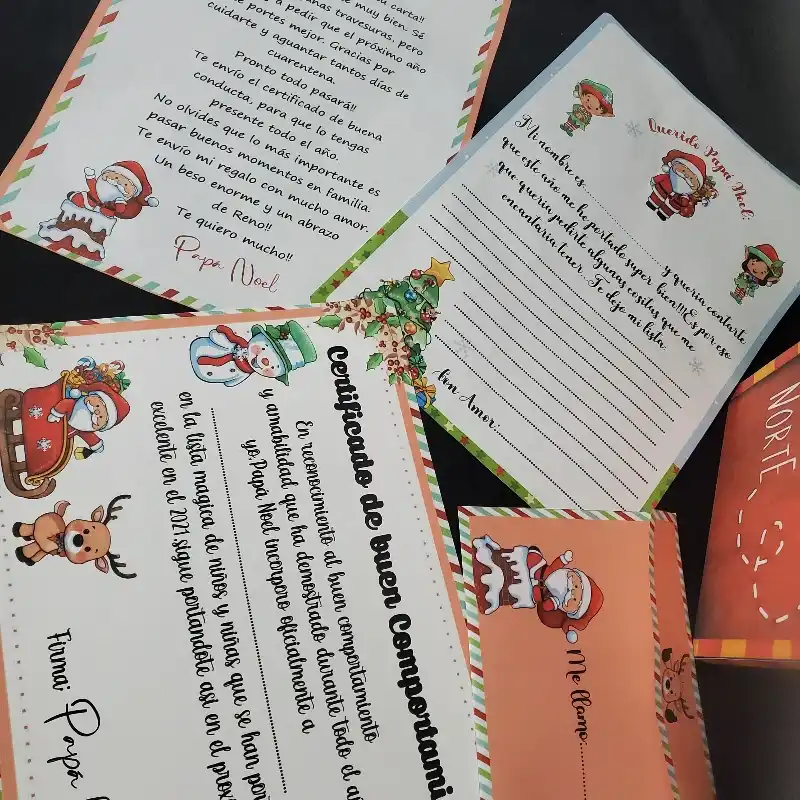 su carta!!
muy bien. Sé
travesuras, pero
a pedir que el próximo año
te portes mejor. Gracias por
cuidarte y aguantar tantos días de
cuarentena.
Pronto todo pasará!!
Te envío el certificado de buena
conducta, para que lo tengas
presente todo el año.
No olvides que lo más importante es
pasar buenos momentos en familia.
Te envío mi regalo con mucho amor.
Un beso enorme y un abrazo
de Reno!!
Te quiero mucho!!
Papá Noel
Querido Papá Noel:
Mi nombre es.................... y queria contarte
que este año me he portado super bien!!!Es por eso
que queria pedirte algunas cositas que me
encantaria tener...Te dejo mi lista.
Con Amor:
Certificado de buen Comportami
En reconocimiento al buen comportamiento
y amabilidad que ha demostrado durante todo el a
yo,Papá Noel incorporo oficialmente a
en la lista magica de niños y niñas que se han por
excelente en el 2021,sigue portandote asi en el prox
Firma: Papá
Me llamo:
NORTE